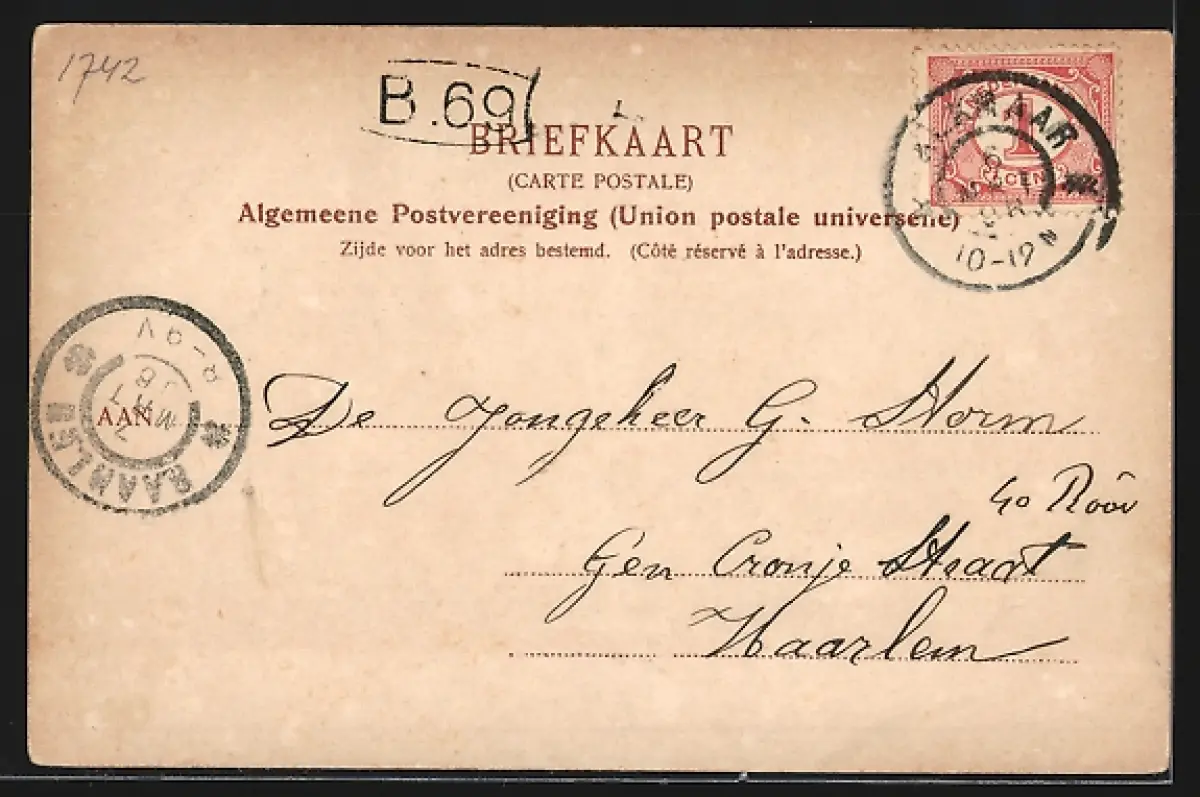 1742
B.69
BRIEFKAART
(CARTE POSTALE)
Algemeene Postvereeniging (Union postale universelle)
Zijde voor het adres bestemd. (Côté réservé à l'adresse.)
ALKMAAR
6
10-12 N
1
CENT
8-9V
HAARLEM
AAN
De Jongeheer G. Storm
Gen Cronje Straat
Haarlem